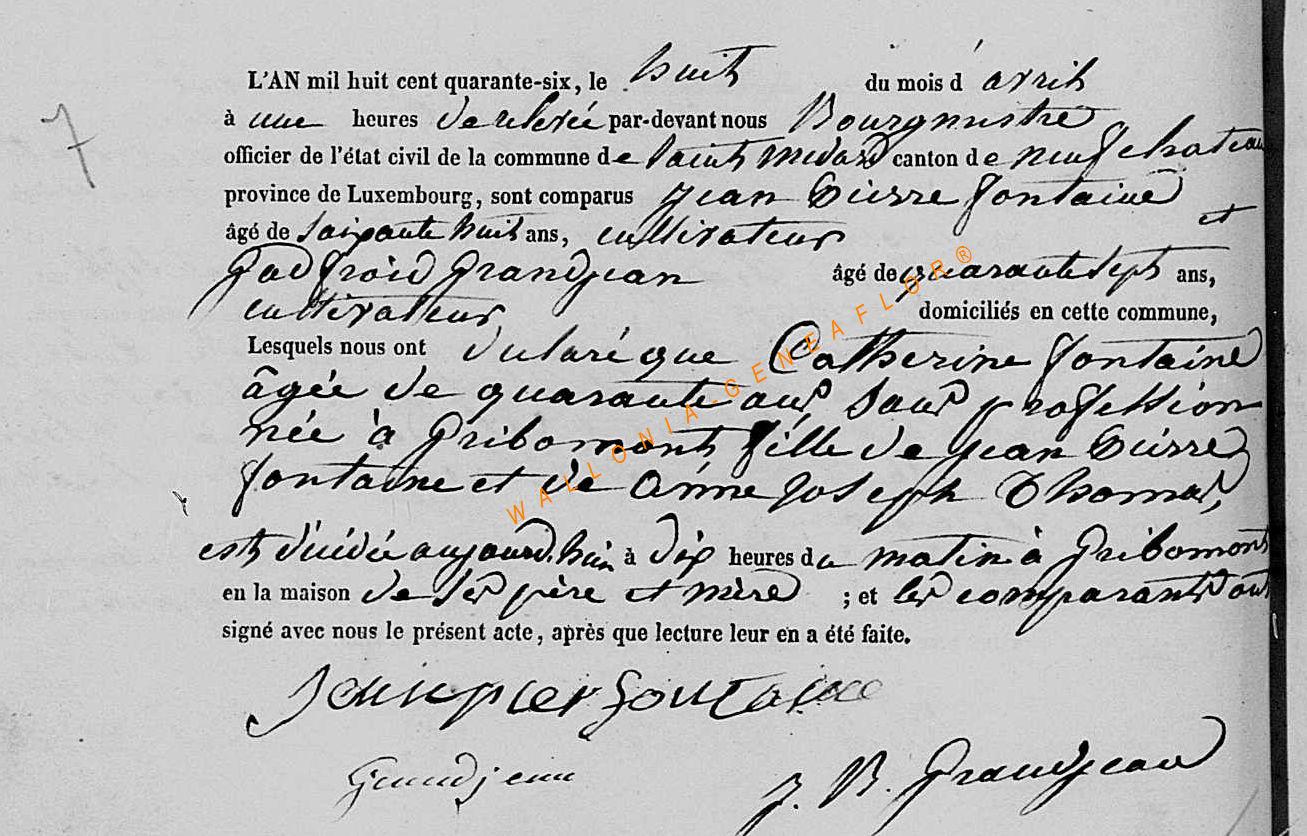 7
L'AN mil huit cent quarante-six, le huit du mois d'avril
à une heures de relevée par-devant nous Bourgmestre
officier de l'état civil de la commune de Saint Médard canton de neufchateau
province de Luxembourg, sont comparus Jean Pierre fontaine
âgé de soixante huit ans, cultivateur et
Godfroid Grandjean âgé de quarante sept ans,
cultivateur domiciliés en cette commune,
Lesquels nous ont déclaré que Catherine fontaine
âgée de quarante ans, sans profession
née à Gribomont fille de jean Pierre
fontaine et de Anne Joseph Thomas,
est décédée aujourd'hui à dix heures du matin à Gribomont
en la maison de ses père et mère ; et les comparants ont
signé avec nous le présent acte, après que lecture leur en a été faite.
Jean pier fontaine
Grandjean J. B. Grandjean
WALLONIA-GENEAFLOR®